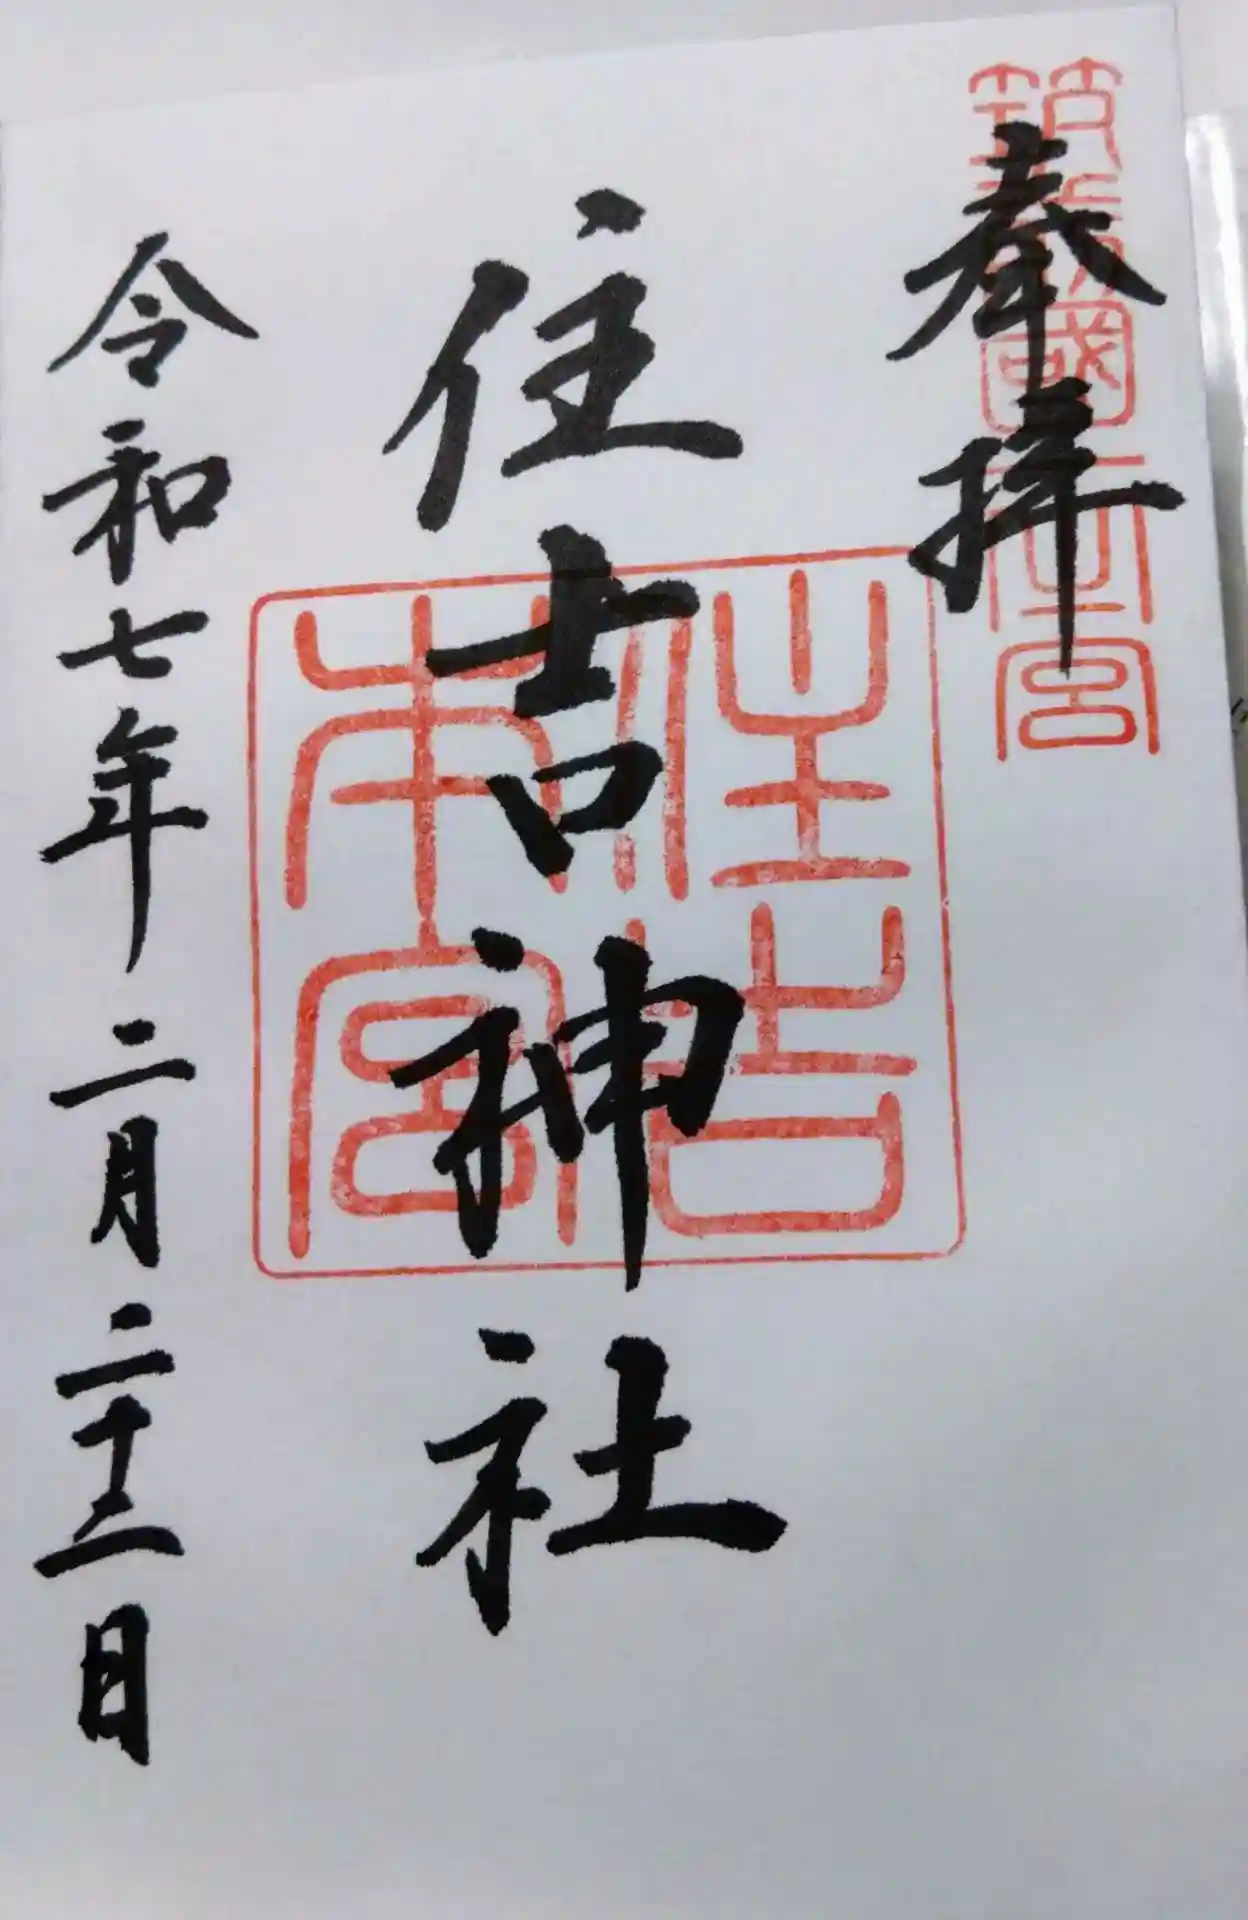 奉拝
筑前國一之宮
住吉神社
住吉
本宮
令和七年二月二十二日